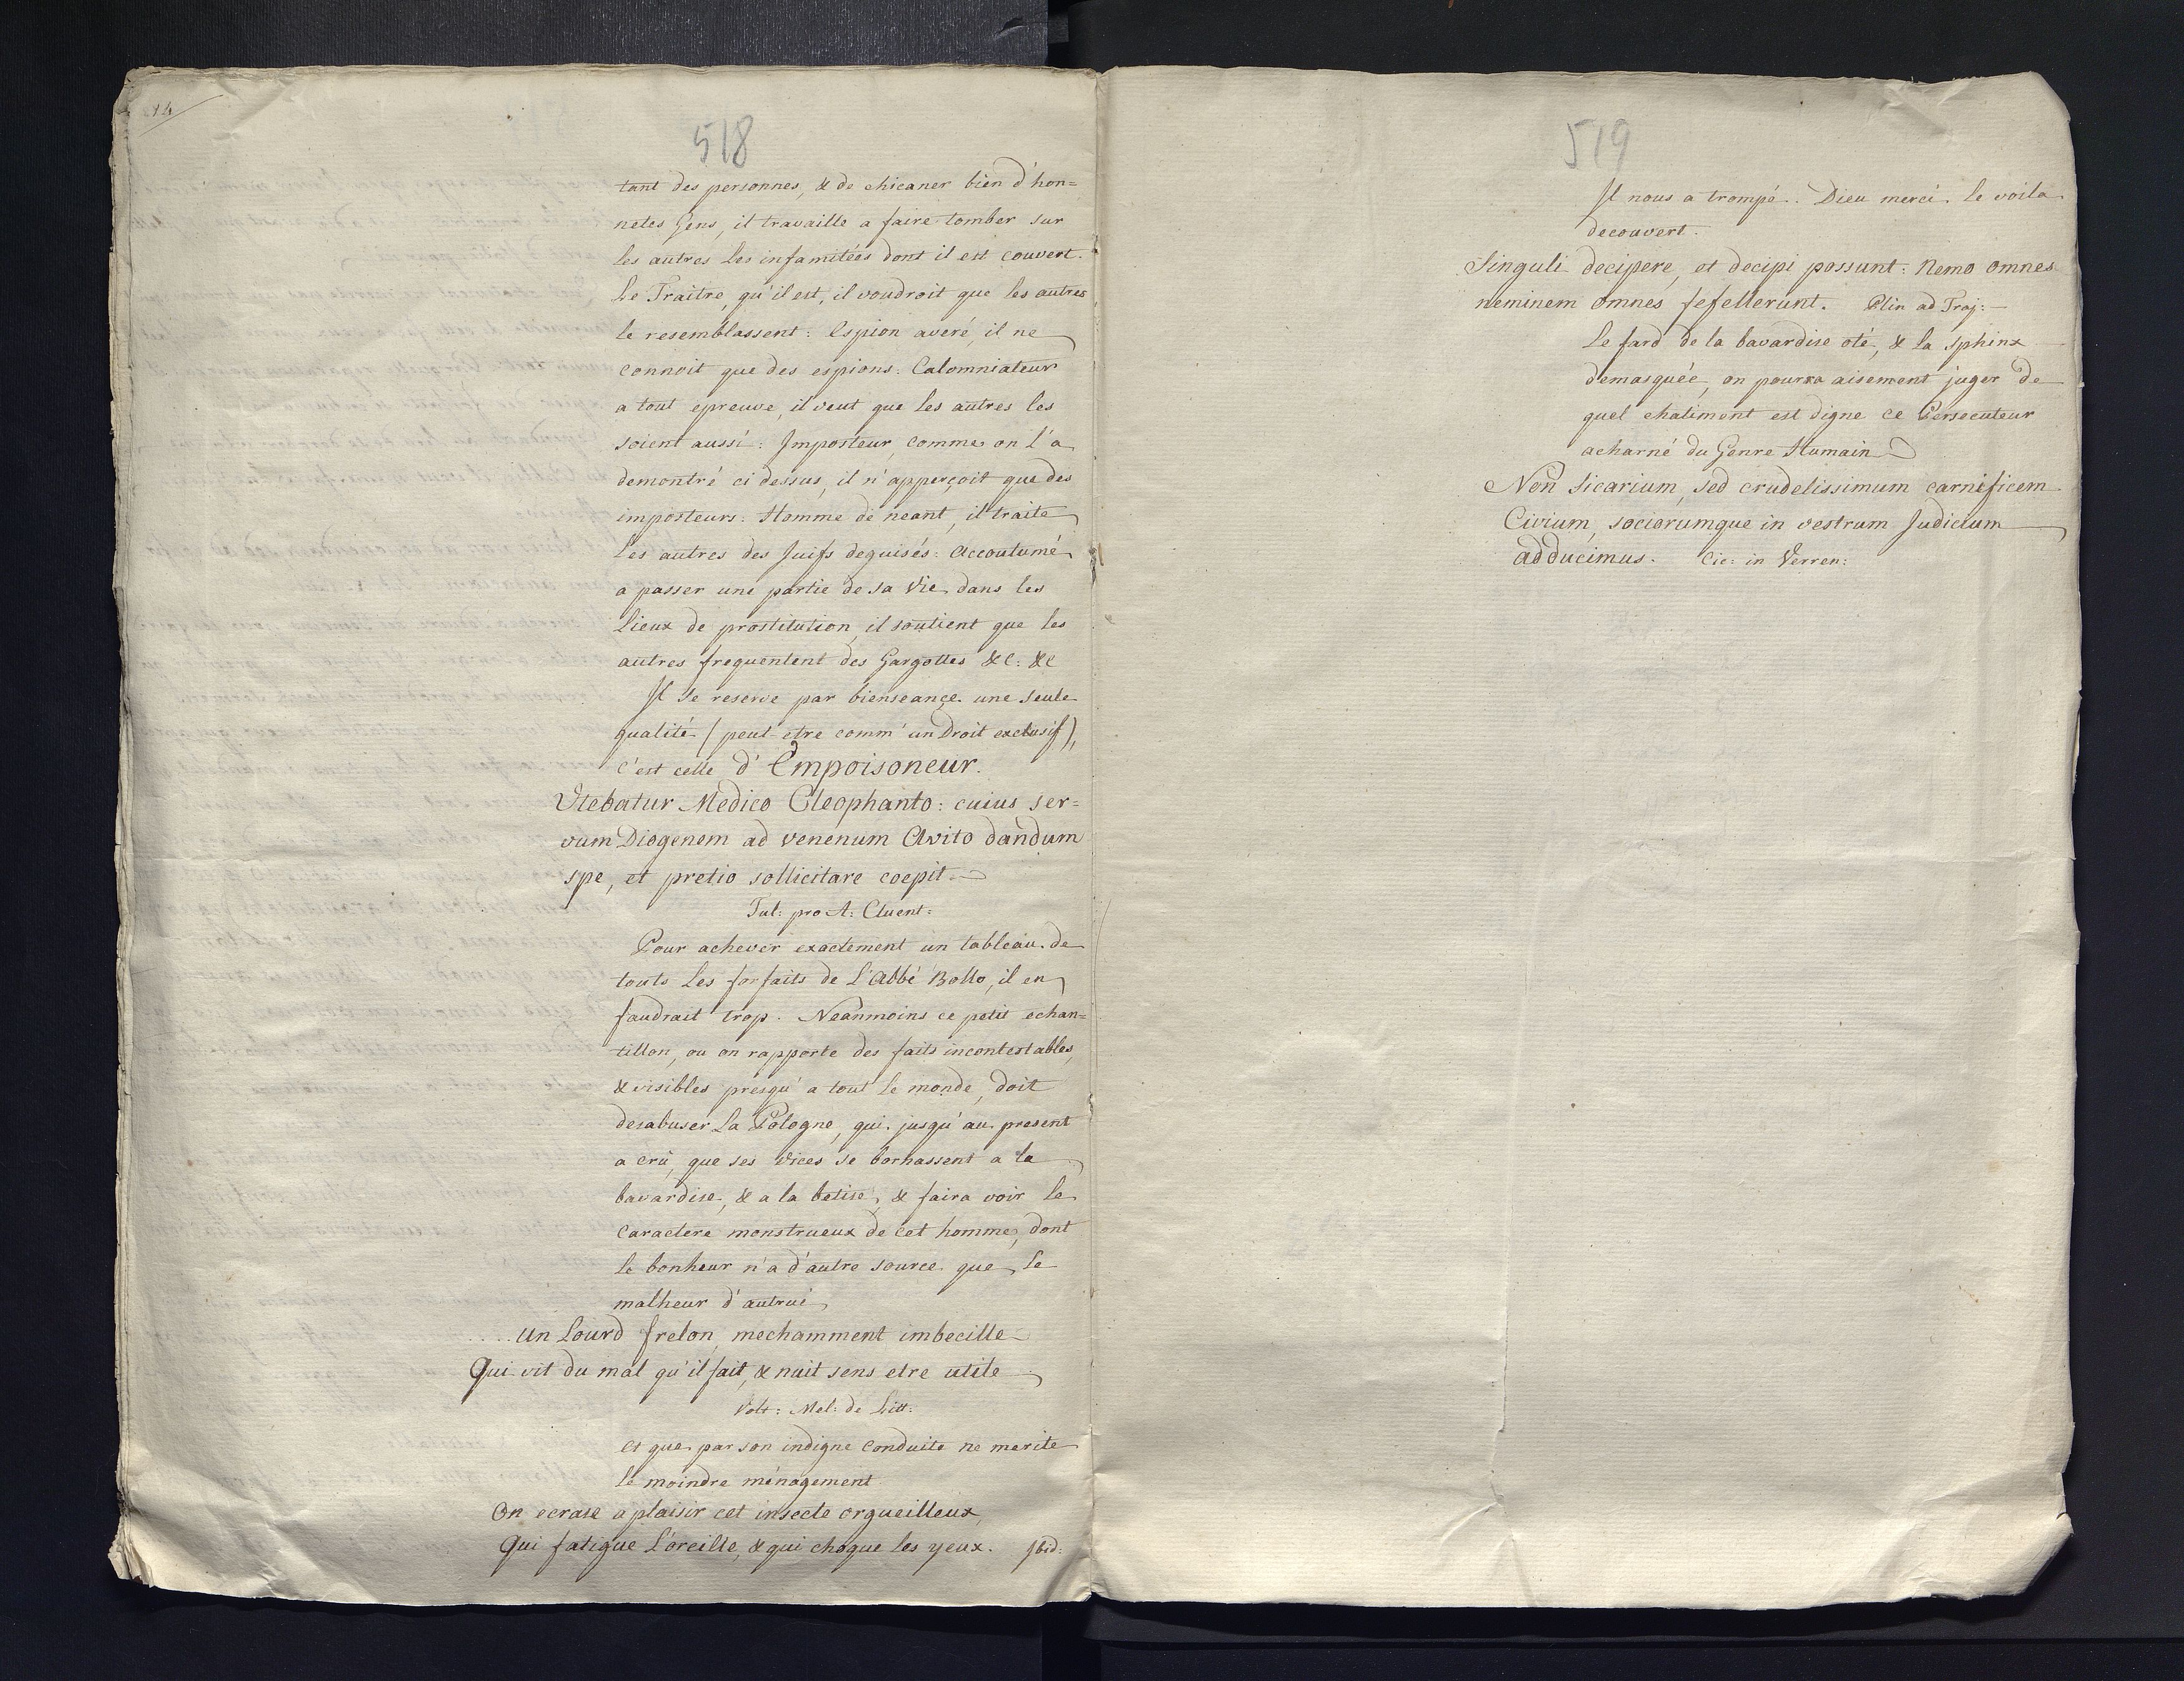 14
518
tant des personnes, & de chicaner bien d'hon=
netes Gens, il travaille a faire tomber sur
les autres les infamitées dont il est couvert.
Le Traitre, qu'il est, il voudroit que les autres
le resemblassent: Espion averé, il ne
connoit que des espions: Calomniateur
a tout epreuve, il veut que les autres les
soient aussi: Imposteur, comme on l'a
demontré ci dessus, il n'apperçoit que des
imposteurs: Homme de neant, il traite
les autres des Juifs deguisés: Accoutumé
a passer une partie de sa Vie dans les
lieux de prostitution, il soutient que les
autres frequentent des Gargottes &c: &c
Il se reserve par bienseance une seule
qualité (peut-etre comm' un Droit exclusif),
c'est celle d'Empoisoneur.
Utebatur Medico Cleophanto: cuius ser=
vum Diogenem ad venenum Avito dandum
spe, et pretio sollicitare coepit
Tul: pro A: Cluent:
Pour achever exactement un tableau de
touts les forfaits de L'Abbé Bollo, il en
faudrait trop. Neanmoins ce petit echan=
tillon, ou on rapporte des faits incontestables,
& visibles presqu' a tout le monde, doit
desabuser La Pologne, qui jusqu'au present
a crû, que ses vices se bornassent a la
bavardise, & a la betise, & faira voir le
caractere monstrueux de cet homme, dont
le bonheur n'a d'autre source que le
malheur d'autrui
.... un Lourd frelon, mechamment imbecille
Qui vit du mal qu'il fait, & nuit sens etre utile
Volt: Mel: de Litt:
et que par son indigne conduite ne merite
le moindre ménagement
On ecrase a plaisir cet insecte orgueilleux,
Qui fatigue l'oreille, & qui choque les yeux. Ibid:
519
Il nous a trompé. Dieu merci le voila
decouvert.
Singuli decipere, et decipi possunt: Nemo omnes
neminem omnes fefellerunt. Plin ad Traj:
Le fard de la bavardise oté, & la sphinx
demasquée, on pourra aisement juger de
quel chatiment est digne ce Persecuteur
acharné du Genre Humain
Non sicarium, sed crudelissimum carnificem
Civium, sociorumque in vestrum Judicium
adducimus. Cic: in Verren: